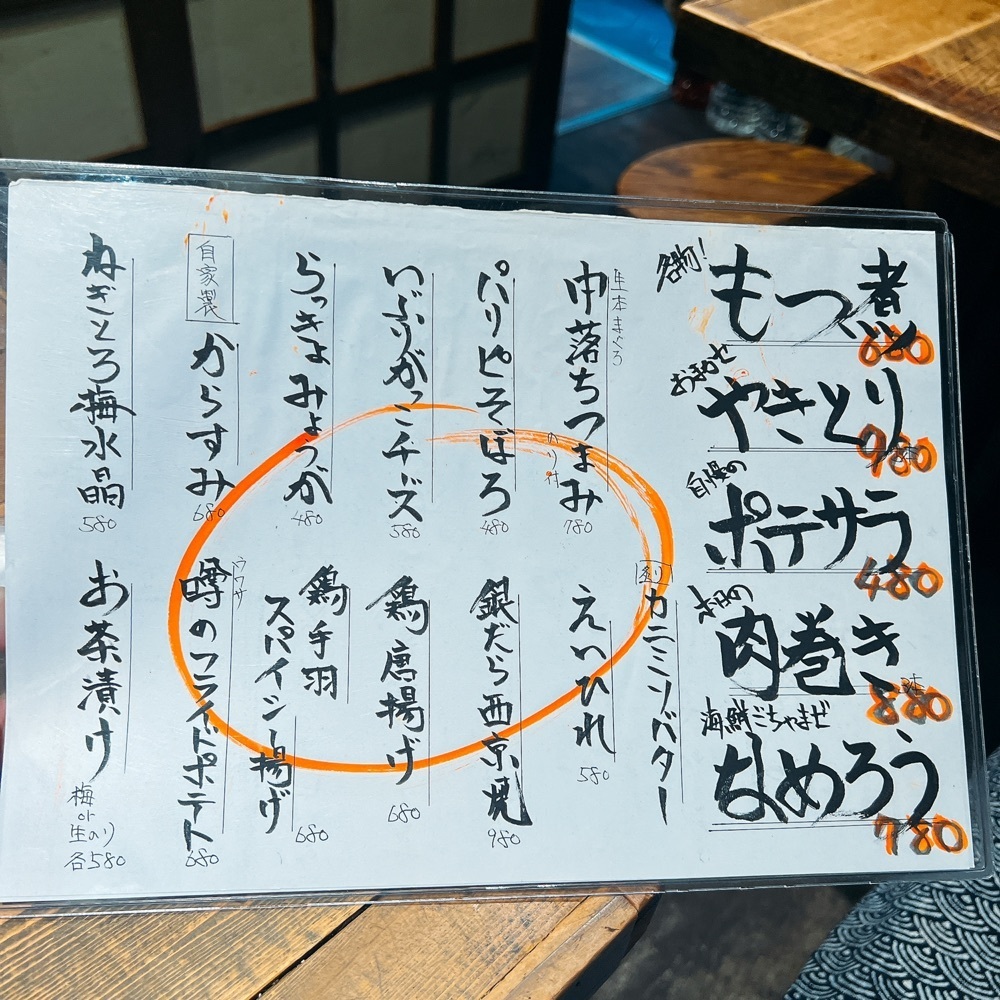 名物!
もつ煮
680
おまかせ
やきとり
5本
980
自慢の
ポテサラ
480
本日の
肉巻き
3本
880
海鮮ごちゃまぜ
なめろう
780
生本まぐろ
中落ちつまみ
のり付
780
パリピそぼろ
480
いぶりがっこチーズ
580
らっきょみょうが
480
自家製
からすみ
680
ねぎとろ梅水晶
580
カニミソバター
えいひれ
580
銀だら西京焼
980
鶏唐揚げ
680
鶏手羽
スパイシー揚げ
680
ウワサ
噂のフライドポテト
680
お茶漬け
梅
or
生のり
各580